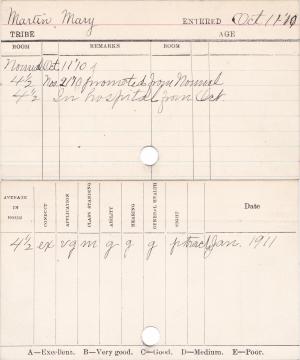 Martin, Mary ENTERED Oct. 11-'10
TRIBE AGE
ROOM REMARKS ROOM
Normal Oct. 11 '10
4 1/2 Nov 2 1/10 promoted from Normal
4 1/2 In hospital from Oct
AVERAGE IN ROOM CONDUCT APPLICATION CLASS STANDING ABILITY HEARING GENERAL HEALTH SIGHT Date
4 1/2 ex vg m g g g p Jan. 1911
A—Excellent. B—Very good. C—Good. D—Medium. E—Poor.